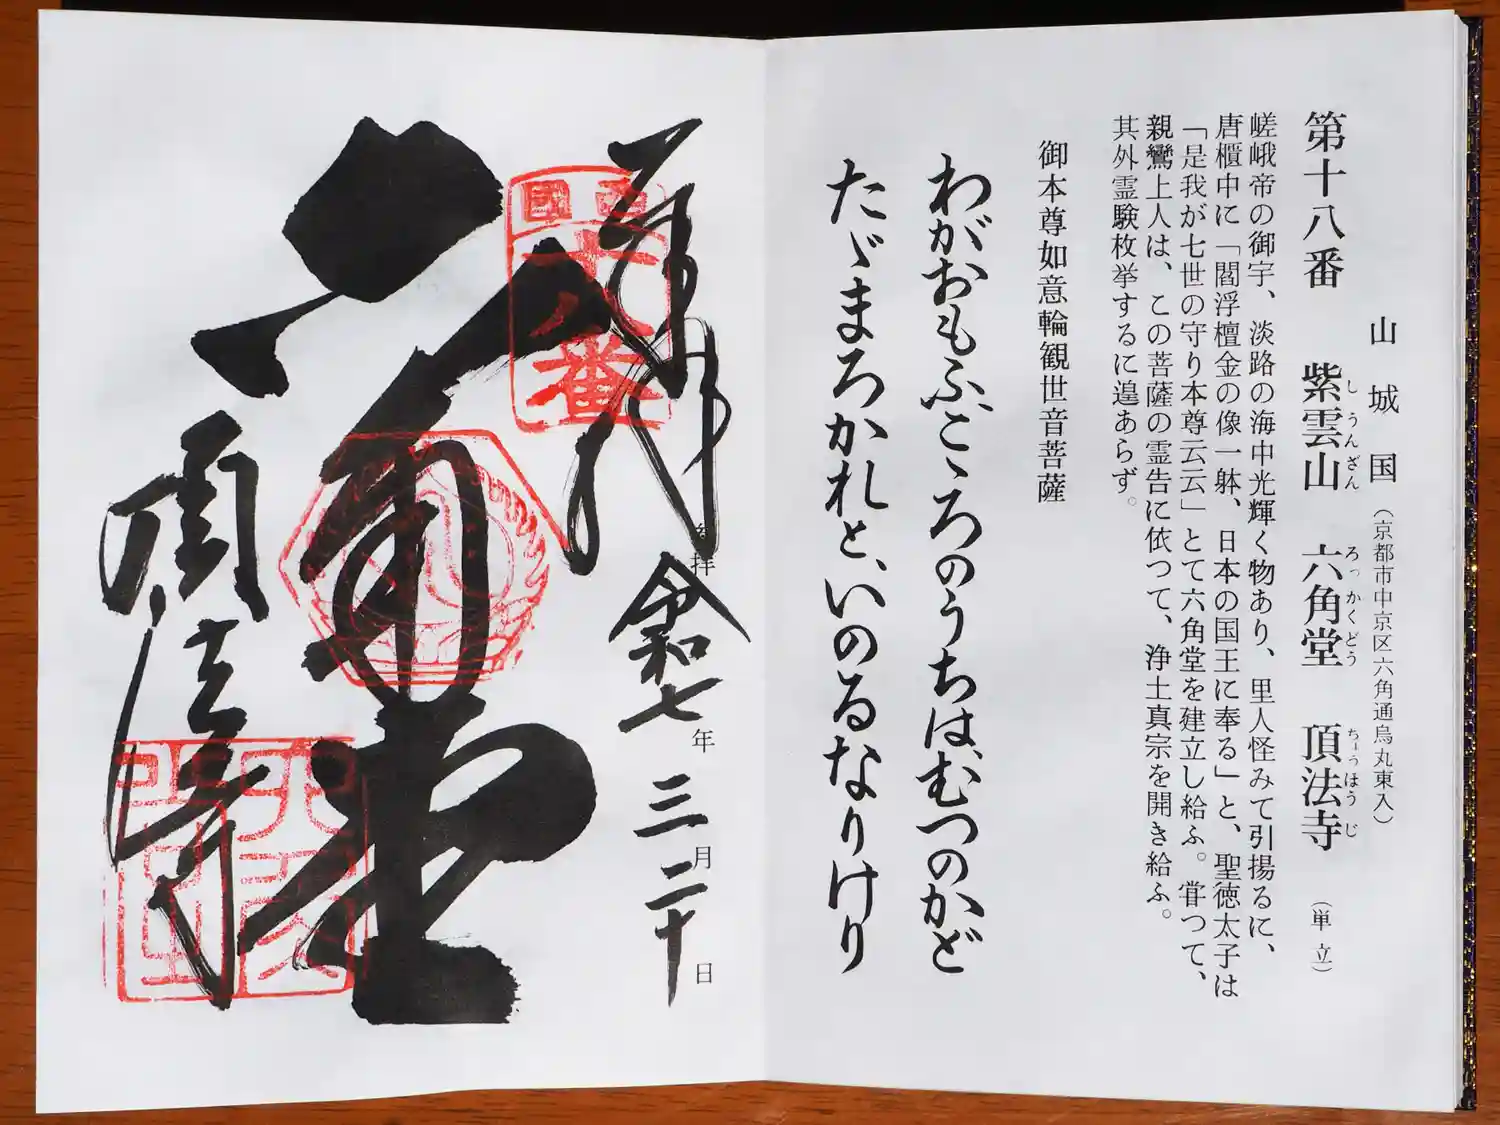 山城国（京都市中京区六角通烏丸東入）
第十八番　紫雲山　六角堂　頂法寺（単立）
しうんざん　ろっかくどう　ちょうほうじ
嵯峨帝の御宇、淡路の海中光輝く物あり、里人怪みて引揚るに、
唐櫃中に「閻浮檀金の像一躰、日本の国王に奉る」と、聖徳太子は
「是我が七世の守り本尊云云」とて六角堂を建立し給ふ。甞つて、
親鸞上人は、この菩薩の霊告に依つて、浄土真宗を開き給ふ。
其外霊験枚挙するに遑あらず。
御本尊如意輪観世音菩薩
わがおもふ、こゝろのうちは、むつのかど
たゞまろかれと、いのるなりけり
奉拝
西国
十八番
参拝
令和七年三月二十日
六角堂
頂法寺